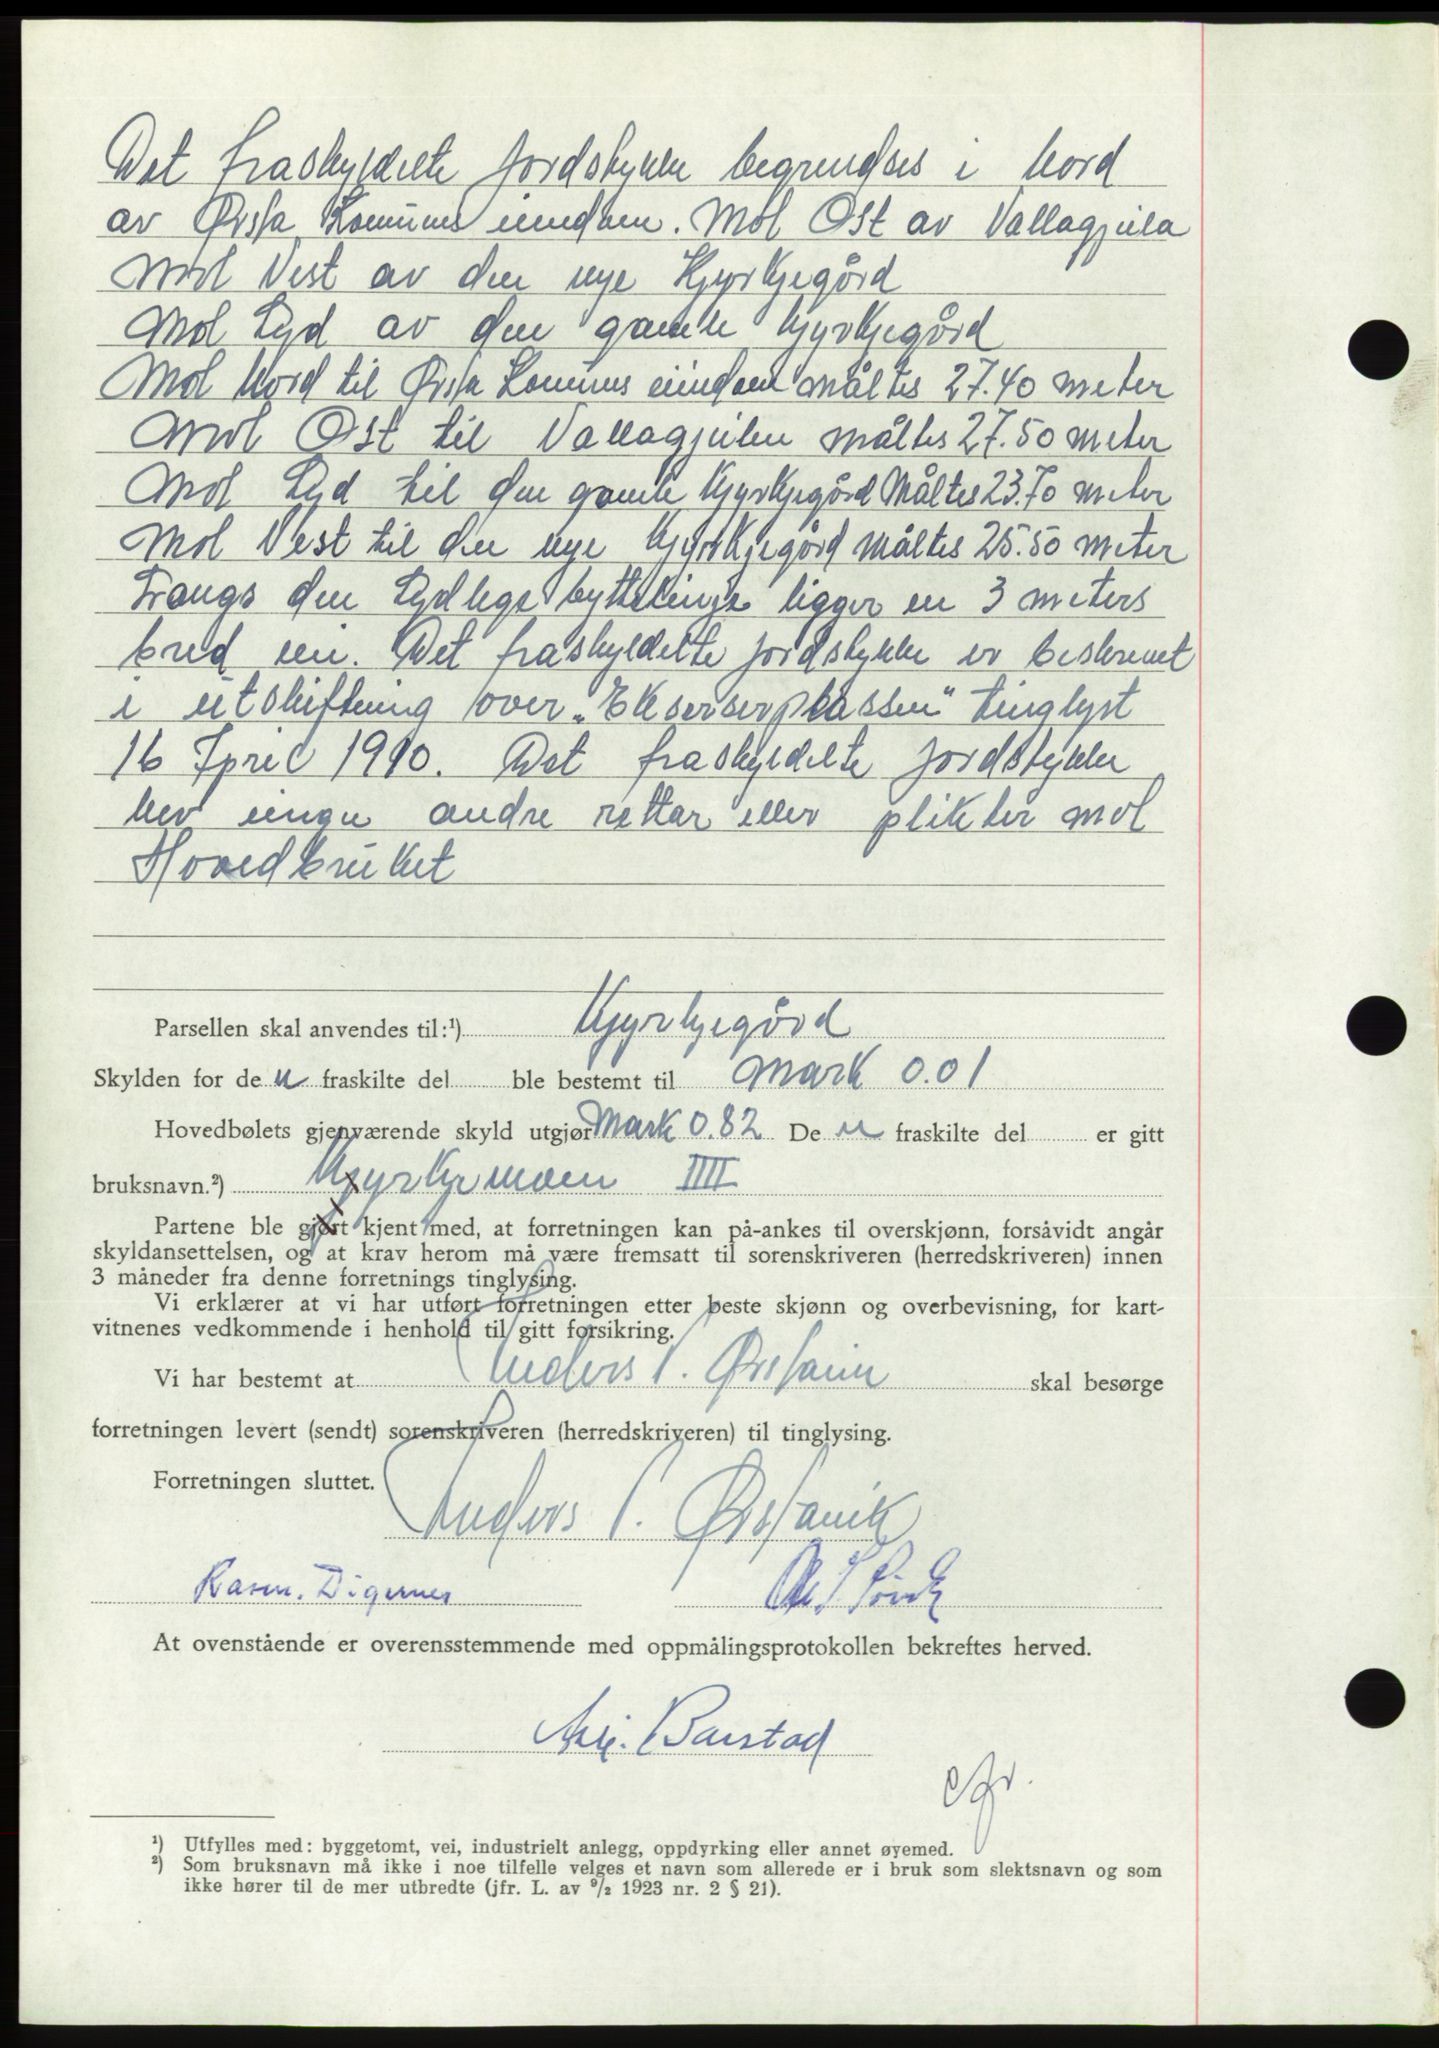 Det fraskyldelte jordstykke begrendses i Nord
av Ørsta Komuns eiendom. Mol Ost av Vallagjula
Mol Vest av den nye Kjyrkjegård
Mol Syd av den gamle Kjyrkjegård
Mol Nord til Ørsta Komuns eiindom måltes 27.40 meter
Mol Ost til Vallagjulen måltes 27.50 meter
Mol Syd til den gamle Kjyrkjegård Måltes 23.70 meter
Mol Vest til den nye Kjyrkjegård måltes 25.50 meter
Langs den Sydlege byttelinje ligger en 3 meters
bred vei. Det fraskyldelte jordstykke er beskrevet
i utskiftning over „Ekserserplassen" tinglyst
16 April 1910. Det fraskyldelte jordstykke
hev inga andre rettar eller plikter mol
Hovedbruket
Parsellen skal anvendes til:¹) Kjyrkjegård
Skylden for de n fraskilte del ble bestemt til Mark 0.01
Hovedbølets gjenværende skyld utgjør Mark 0.82 De n fraskilte del er gitt
bruksnavn.²) Kjyrkjemoen IIII
Partene ble gjort kjent med, at forretningen kan på-ankes til overskjønn, forsåvidt angår
skyldansettelsen, og at krav herom må være fremsatt til sorenskriveren (herredskriveren) innen
3 måneder fra denne forretnings tinglysing.
Vi erklærer at vi har utført forretningen etter beste skjønn og overbevisning, for kart-
vitnenes vedkommende i henhold til gitt forsikring.
Vi har bestemt at Anders P. Ørstavik skal besørge
forretningen levert (sendt) sorenskriveren (herredskriveren) til tinglysing.
Forretningen sluttet.
Anders P. Ørstavik
Rasm. Digernes
At ovenstående er overensstemmende med oppmålingsprotokollen bekreftes herved.
Barstad
¹) Utfylles med: byggetomt, vei, industrielt anlegg, oppdyrking eller annet øyemed.
²) Som bruksnavn må ikke i noe tilfelle velges et navn som allerede er i bruk som slektsnavn og som
ikke hører til de mer utbredte (jfr. L. av ⁹/₂ 1923 nr. 2 § 21).